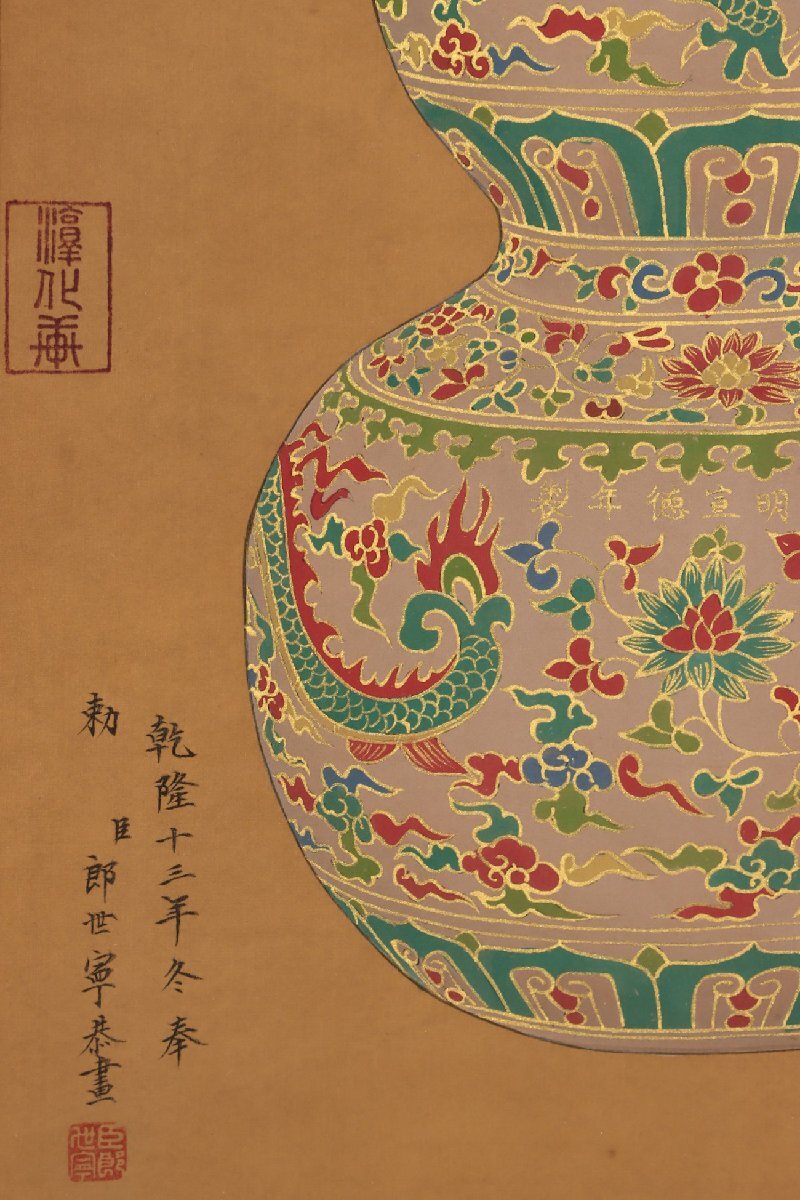 明宣德年製
乾隆十三年冬奉
勅
臣郎世寧恭畫
臣郎世寧
淳化